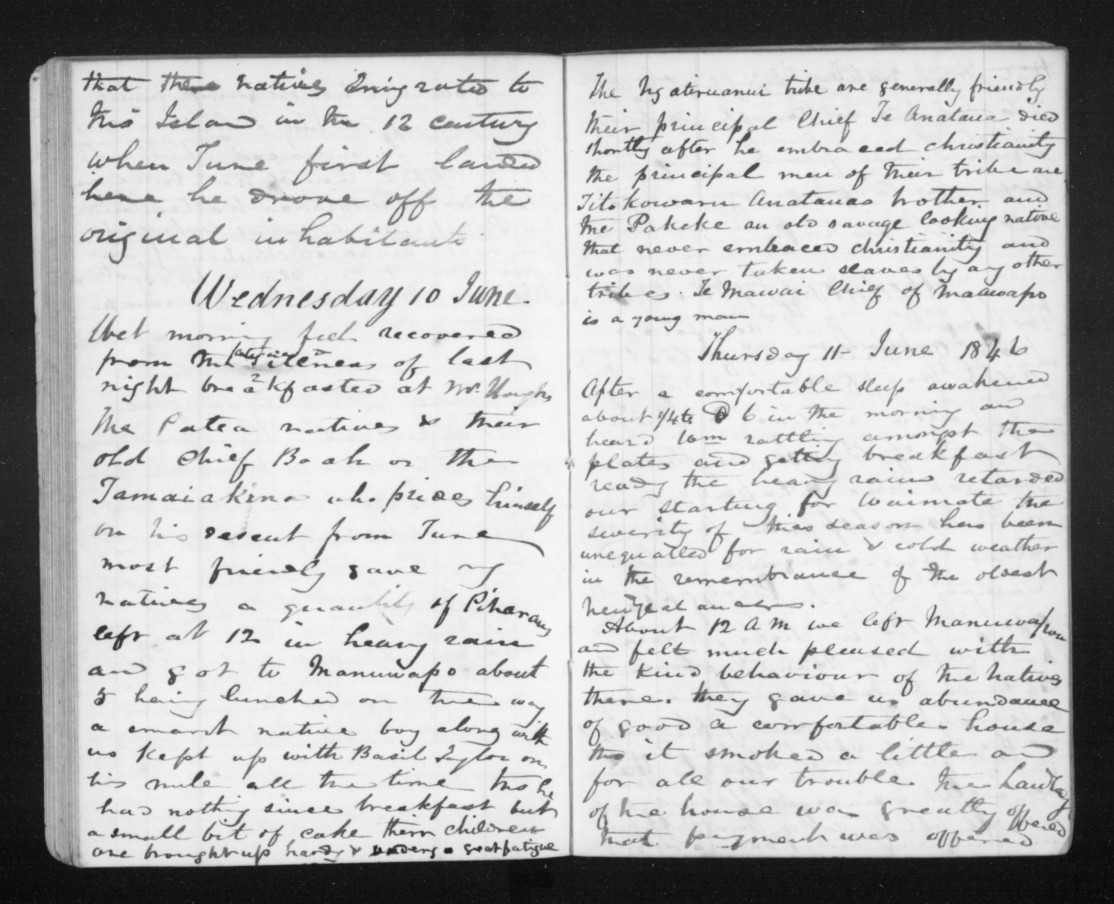 that these natives Emigrated to
this Island in the 12 century
when Turie first landed
here he drove off the
original inhabitants
Wednesday 10 June.
Wet morning feel recovered
from the of last
night breakfasted at Mr. Houghs
The Patea natives & their
old Chief Baak or the
Tamaiakina who prides himself
on his descent from Turie
most friendly gave my
natives a quantity of Piharau
left at 12 in heavy rain
and got to Manuwapo about
5 having lunched on the way
a smart native boy along with
us kept up with Basil Taylor on
his mule all the time tho he
had nothing since breakfast but
a small bit of cake them children
are brought up hardy & undergo great fatigue
The Ngatiruanui tribe are generally friendly
their principal Chief Te Anataua died
shortly after he embraced christianity
the principal men of their tribe are
Titokowaru Anatauas brother and
the Pakeke an old savage looking native
that never embraced christianity and
was never taken slaves by any other
tribes. Te Mawai Chief of Manawapo
is a young man
Thursday 11 June 1846
After a comfortable sleep awakened
about 1/4 to 6 in the morning and
heard Wm rattling amongst the
plates and getting breakfast
ready the heavy rain retarded
our starting for Waimate the
severity of this season has been
unequalled for rain & cold weather
in the remembrance of the oldest
New Zealanders.
About 12 A M we left Manuwapou
and felt much pleased with
the kind behaviour of the natives
there. they gave us abundance
of good a comfortable house
tho it smoked a little and
for all our trouble the Landlady
of the house was greatly offended
that payment was offered